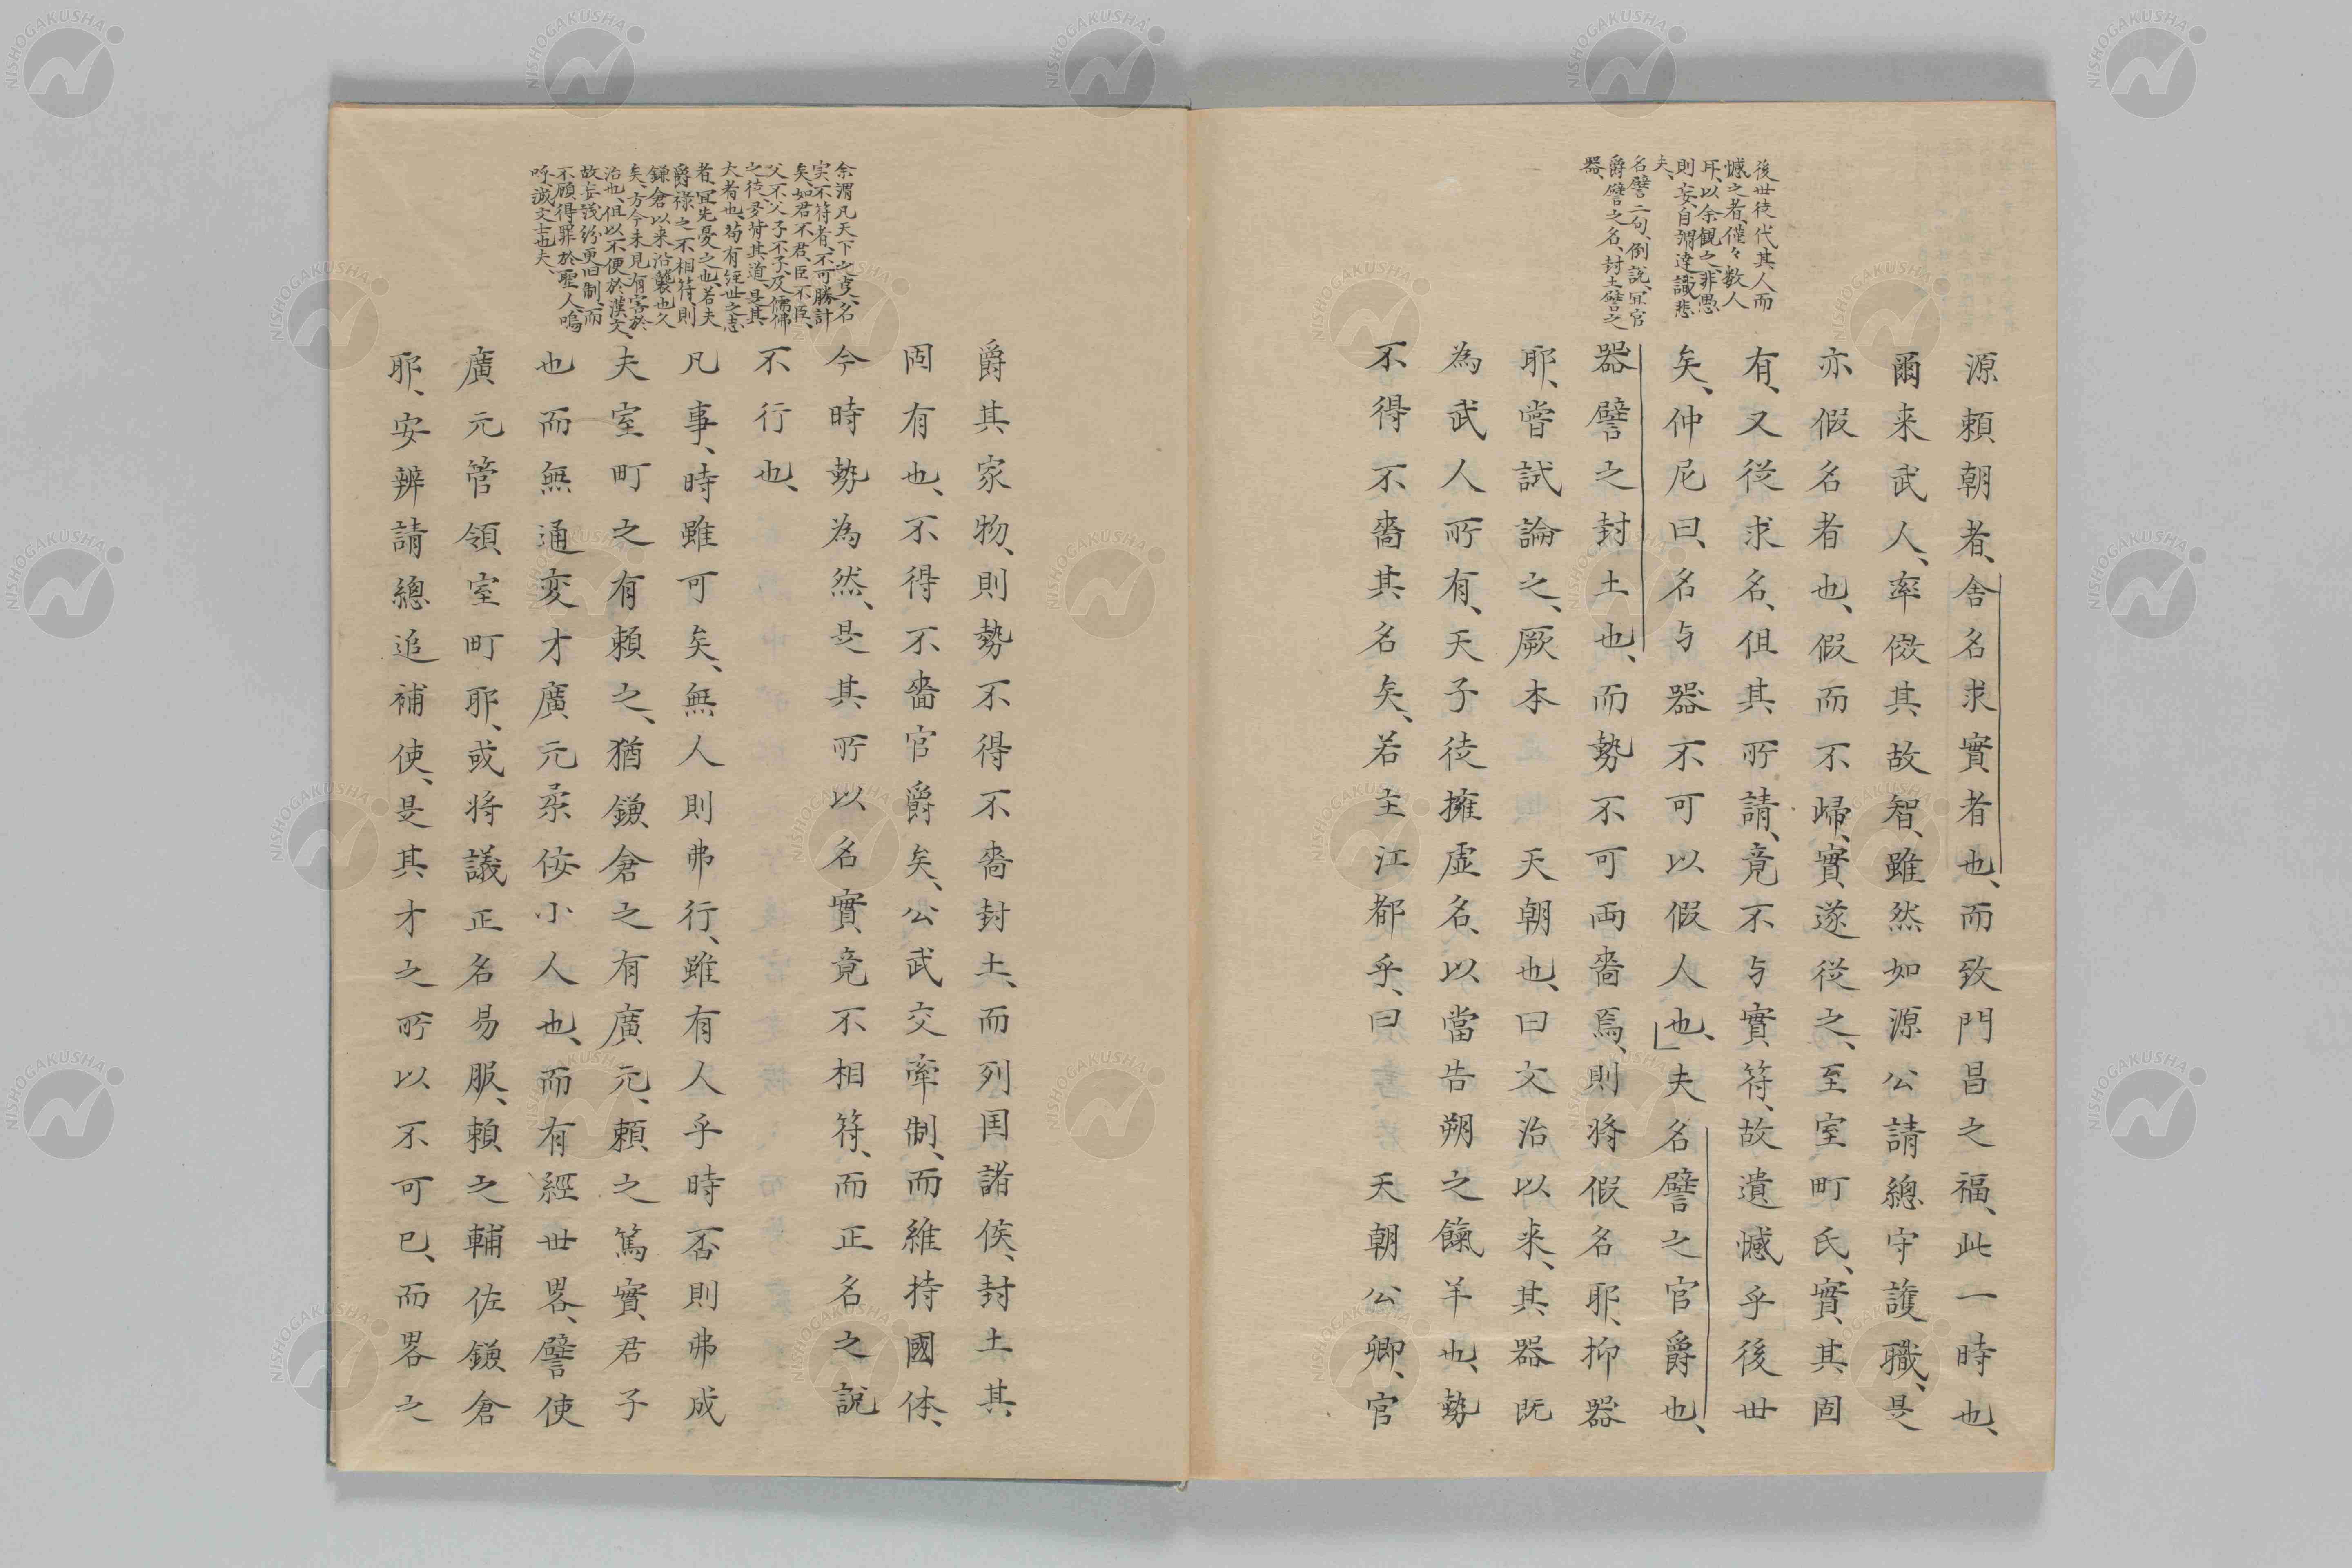 後世徒代其人而
憾之者、僅々数人
耳、以余観之、非愚
則妄、自謂達識悲
夫、
名譬二句、倒説、冝官
爵譬之名、封土譬之
器、
源頼朝者、舎名求實者也、而致門昌之福、此一時也、
爾来武人、率倣其故智、雖然如源公請總守護職、是
亦假名者也、假而不歸、實遂従之、至室町氏、實其固
有、又従求名、但其所請、竟不与實符、故遺憾乎後世
矣、仲尼曰、名与器不可以假人也、」夫名譬之官爵也、
器譬之封土也、而勢不可両嗇焉、則将假名耶、抑器
耶、嘗試論之、厥本 天朝也、曰文治以来、其器既
為武人所有、天子徒擁虚名、以當告朔之餼羊也、勢
不得不嗇其名矣、若主江都乎、曰 天朝公卿、官
余謂凡天下之叓、名
実不符者、不可勝計
矣、如君不君、臣不臣、
父不父、子不子、及儒佛
之徒、多背其道、是其
大者也、苟有経世之志
者、冝先憂之也、若夫
爵禄之不相符、則
鎌倉以来沿襲也久
矣、方今未見有害於
治也、但以不便於漢文、
故妄議紛更旧制、而
不顧得罪於聖人、嗚
呼、誠文士也夫、
爵其家物、則勢不得不嗇封土、而列国諸侯、封土其
固有也、不得不嗇官爵矣、公武交牽制、而維持國体、
今時勢為然、是其所以名實竟不相符、而正名之説
不行也、
凡事、時雖可矣、無人則弗行、雖有人乎時否則弗成
夫室町之有頼之、猶鎌倉之有廣元、頼之篤實君子
也而無通変才廣元柔佞小人也、而有經世畧、譬使
廣元管領室町耶、或将議正名易服、頼之輔佐鎌倉
耶、安辨請總追補使、是其才之所以不可已、而畧之